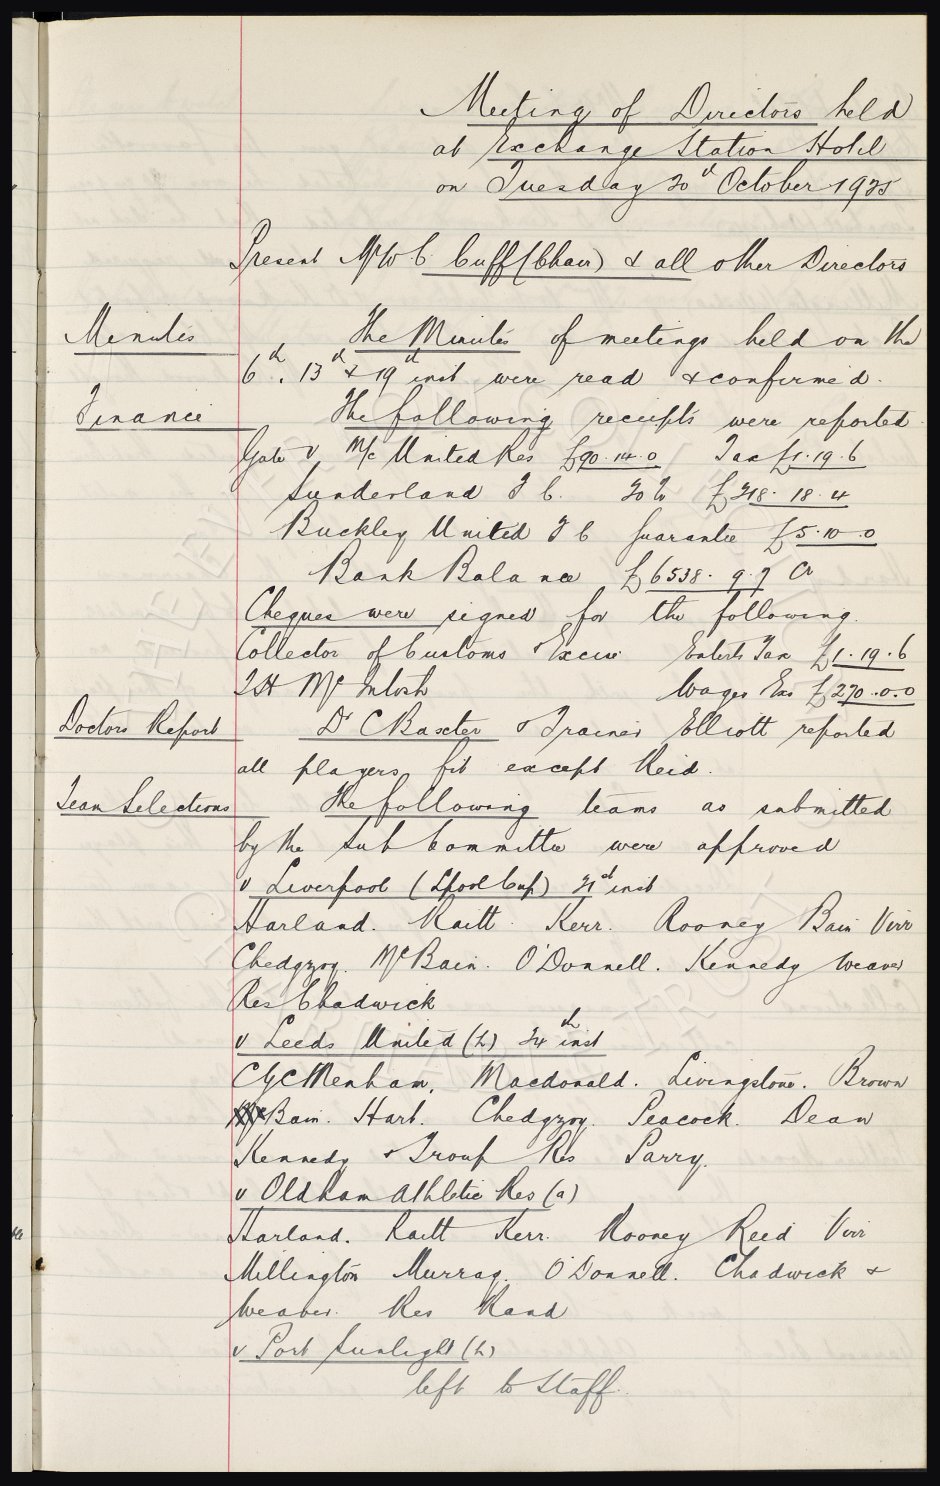 Meeting of Directors held
at Exchange Station Hotel
on Tuesday 20th October 1925
Present Mr W C Cuff (Chair) & all other Directors
Minutes
The Minutes of meetings held on the
6th, 13th & 19th inst were read & confirmed.
Finance
The following receipts were reported
Gate v M/c United Res £90.14.0 Tax £1.19.6
Sunderland F C. 20% £318.18.4
Buckley United F C Guarantee £5.10.0
Bank Balance £6538.9.7 Cr
Cheques were signed for the following.
Collector of Customs & Excise Enterts Tax £1.19.6
T H McIntosh Wages Exs £270.0.0
Doctors Report
Dr C Baxter & Trainer Elliott reported
all players fit except Reid.
Team Selections
The following teams as submitted
by the Sub Committee were approved
v Liverpool (Lpool Cup) 21st inst
Harland. Raitt. Kerr. Rooney Bain Virr
Chedgzoy. McBain. O'Donnell. Kennedy Weaver
Res Chadwick
v Leeds United (h) 24th inst
Menham. Macdonald. Livingstone. Brown
Bain. Hart. Chedgzoy. Peacock. Dean
Kennedy & Troup Res Parry.
v Oldham Athletic Res (a)
Harland. Raitt Kerr. Rooney Reid Virr
Millington Murray. O'Donnell. Chadwick &
Weaver. Res Rand
v Port Sunlight (h)
left to Staff.